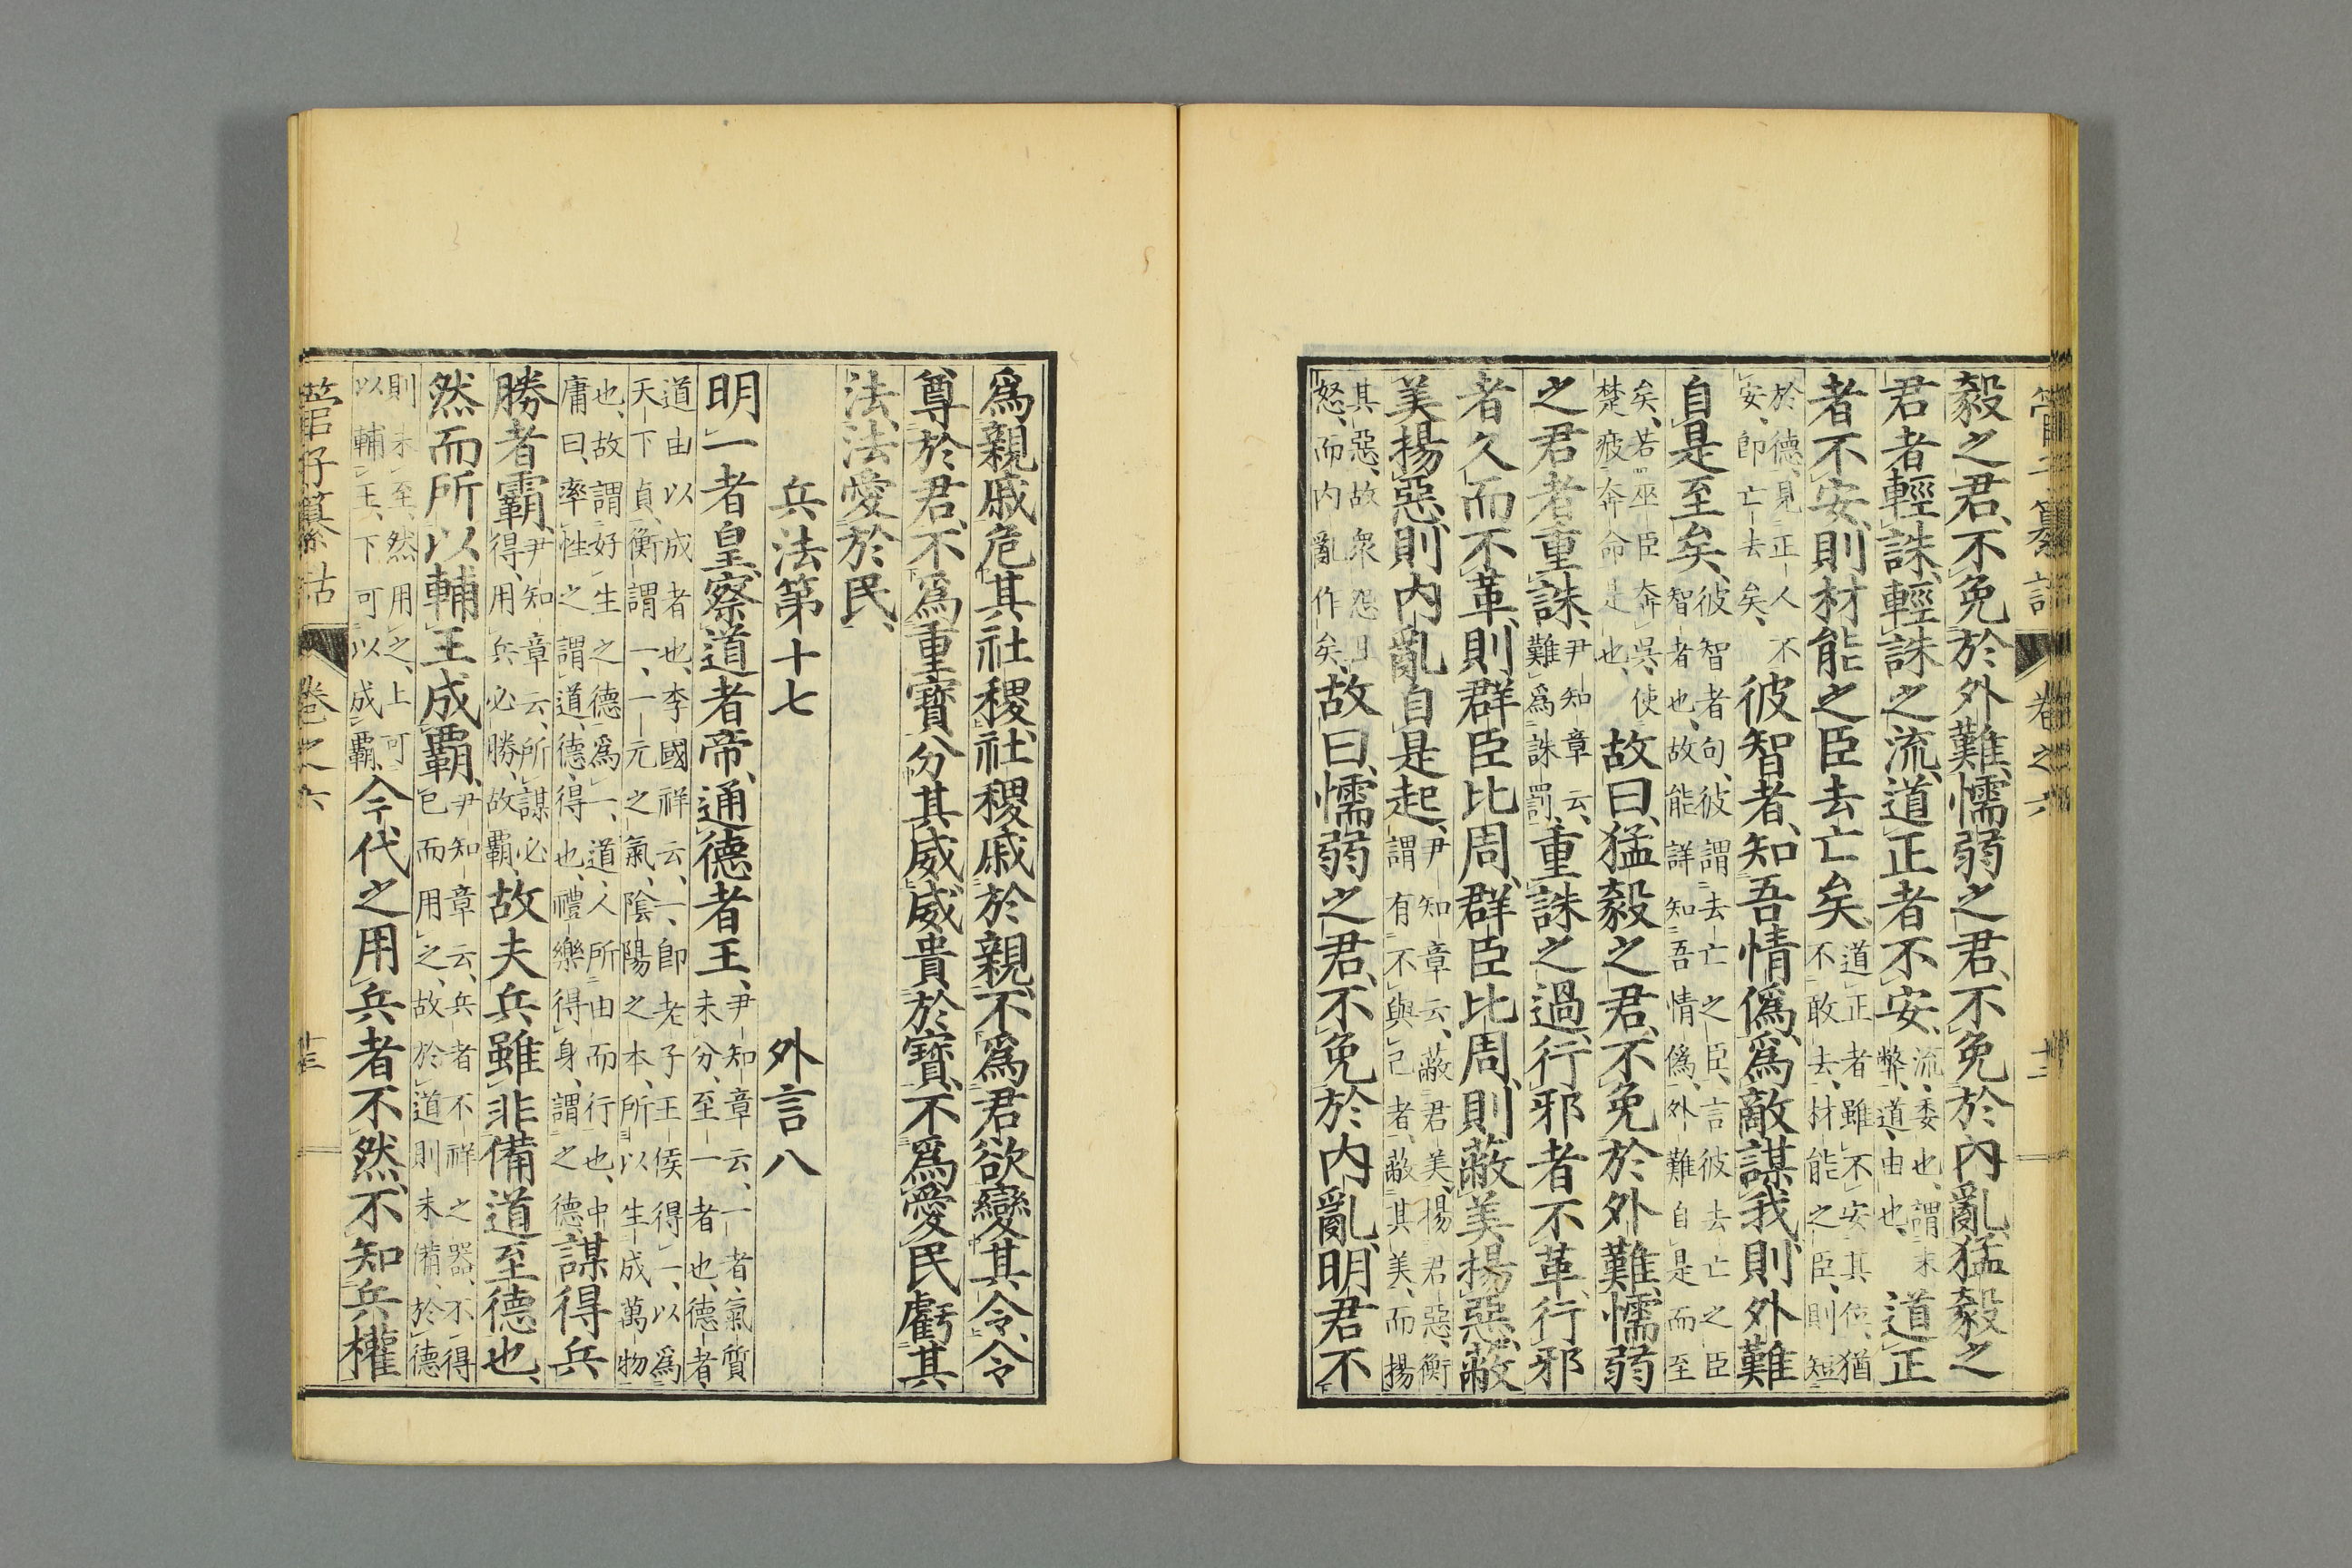 管子纂詁 卷之六 十二
毅之君、不免於外難、懦弱之君、不免於內亂、猛毅之
君者輕誅、輕誅之流、道正者不安、流、委也、謂末弊、道、由也、道正
者不安、則材能之臣去亡矣、道正者雖不安其位、猶不敢去、材能之臣、則短
於德、見正人不安、卽亡去矣、彼智者、知吾情僞、爲敵謀我、則外難
自是至矣、彼智者句、彼謂去亡之臣、言彼去亡之臣智者也、故能詳知吾情僞、外難自是而至
矣、若巫臣奔吳、使楚疲奔命是也、故曰、猛毅之君、不免於外難、懦弱
之君者重誅、尹知章云、難爲誅罰、重誅之過、行邪者不革、行邪
者久而不革、則群臣比周、群臣比周、則蔽美揚惡、蔽
美揚惡、則內亂自是起、尹知章云、蔽君美、揚君惡、衡謂有不與己者、蔽其美、而揚
其惡、故衆怨且怒、而內亂作矣、故曰、懦弱之君、不免於內亂、明君不
爲親戚危其社稷、社稷戚於親、不爲君欲變其令、令
尊於君、不爲重寶分其威、威貴於寶、不爲愛民虧其
法、法愛於民、
兵法第十七 外言八
明一者皇、察道者帝、通德者王、尹知章云、一者、氣質未分、至一者也、德者、
道由以成者也、李國祥云、一、卽老子王侯得一、以爲天下貞、衡謂一、一元之氣、陰陽之本、所以生成萬物
也、故謂好生之德爲一、道、人所由而行也、中庸曰、率性之謂道、德、得也、禮樂得身、謂之德、謀得兵
勝者霸、尹知章云、所謀必得、用兵必勝、故霸、故夫兵雖非備道至德也、
然而所以輔王成霸、尹知章云、兵者不祥之器、不得已而用之、故於道則未備、於德
則未至、然用之、上可以輔王、下可以成霸、今代之用兵者不然、不知兵權
管子纂詁 卷之六 十三